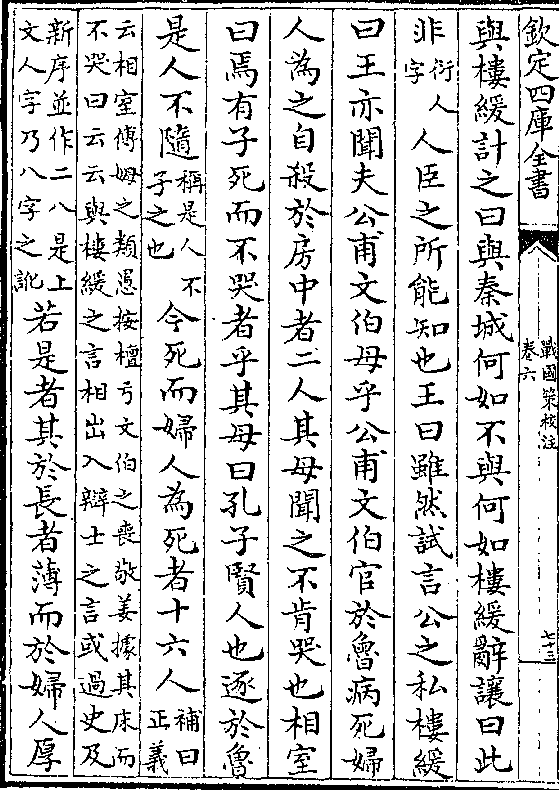 欽定四庫全書
戰國策校注
卷六
七十三
與樓緩計之曰與秦城何如不與何如樓緩辭讓曰此
非衍人字人臣之所能知也王曰雖然試言公之私樓緩
曰王亦聞夫公甫文伯母乎公甫文伯官於魯病死婦
人為之自殺於房中者二人其母聞之不肯哭也相室
曰焉有子死而不哭者乎其母曰孔子賢人也逐於魯
是人不隨稱是人不子之也今死而婦人為死者十六人補曰正義
云相室傅姆之類愚按檀弓文伯之喪敬姜據其床而
不哭曰云云與樓緩之言相出入辯士之言或過史及
新序並作二八是上
文人字乃八字之訛若是者其於長者薄而於婦人厚